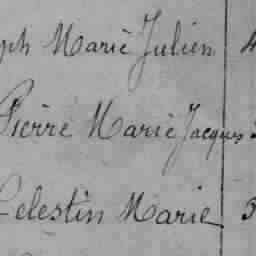 ph Marie Julien 4
Pierre Marie Jacques
Celestin Marie 5